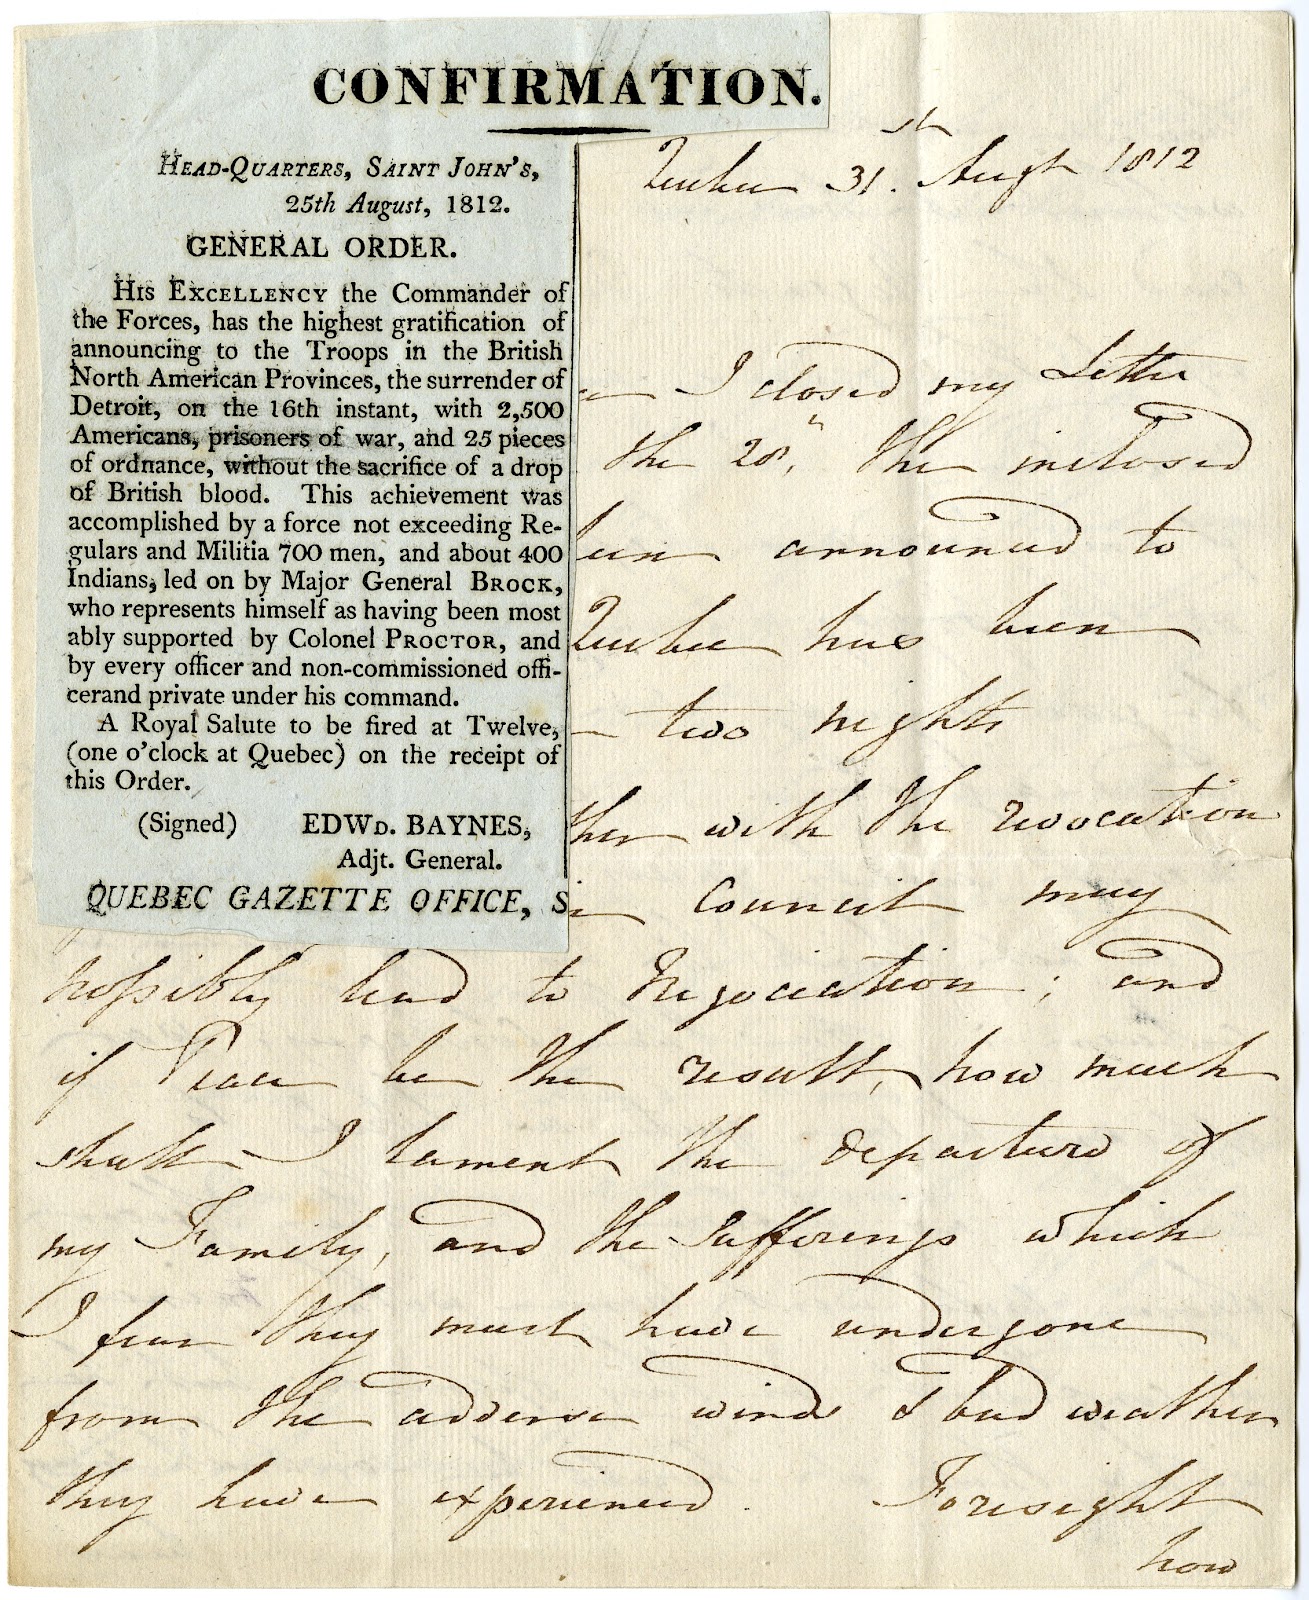 CONFIRMATION.
HEAD-QUARTERS, SAINT JOHN'S,
25th August, 1812.
GENERAL ORDER.
HIS EXCELLENCY the Commander of
the Forces, has the highest gratification of
announcing to the Troops in the British
North American Provinces, the surrender of
Detroit, on the 16th instant, with 2,500
Americans, prisoners of war, and 25 pieces
of ordnance, without the sacrifice of a drop
of British blood. This achievement was
accomplished by a force not exceeding Re-
gulars and Militia 700 men, and about 400
Indians, led on by Major General BROCK,
who represents himself as having been most
ably supported by Colonel PROCTOR, and
by every officer and non-commissioned offi-
cerand private under his command.
A Royal Salute to be fired at Twelve,
(one o'clock at Quebec) on the receipt of
this Order.
(Signed) EDWD. BAYNES,
Adjt. General.
QUEBEC GAZETTE OFFICE, S
Quebec 31.st Augt 1812
I closed my Letter
the 28th, the inclosed
been announced to
Quebec has been
two nights
ther with the revocation
Council may
possibly lead to Negociation; and
if Peace be the result, how much
shall I lament the departure of
my Family, and the Sufferings which
I fear they must have undergone
from the adverse winds & bad weather
they have experienced. Foresight
how